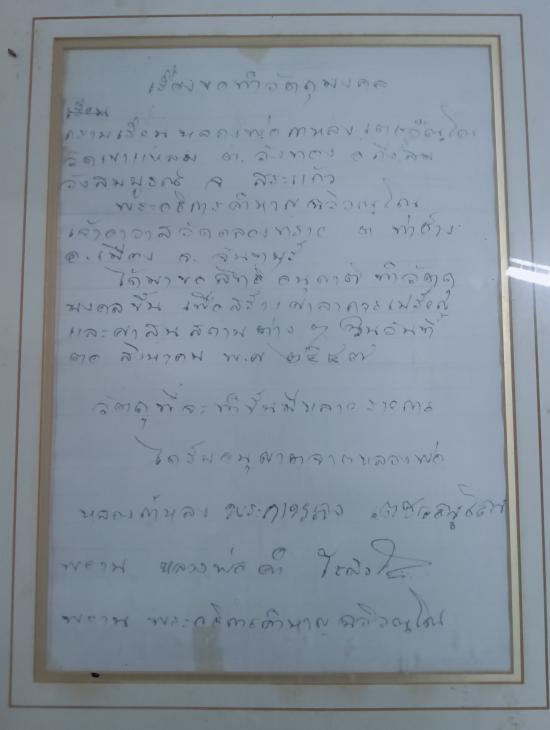 เรื่องขอทำวัตถุมงคล
เรียน
กราบเรียน หลวงพ่อตาหลวง
วัดเขาแหลม ต. วังทอง อ กิ่งอำเภอ
วังสมบูรณ์ จ สระแก้ว
พระอธิการชำนาญ
เจ้าอาวาสวัดคลองทราย ต ท่าช้าง
อ. เมือง จ. จันทบุรี
ได้มาขอสิทธิ์ อนุญาต ทำวัตถุ
มงคลขึ้น เพื่อสร้างศาลาการเปรียญ
และศาสนสถานต่าง ๆ ในวันที่
๓๐ สิงหาคม พ.ศ ๒๕๔๗
วัตถุที่จะทำขึ้นมีหลาย รายการ
ได้รับอนุญาตจากหลวงพ่อ
พยาน หลวงพ่อ
พยาน พระอธิการชำนาญ